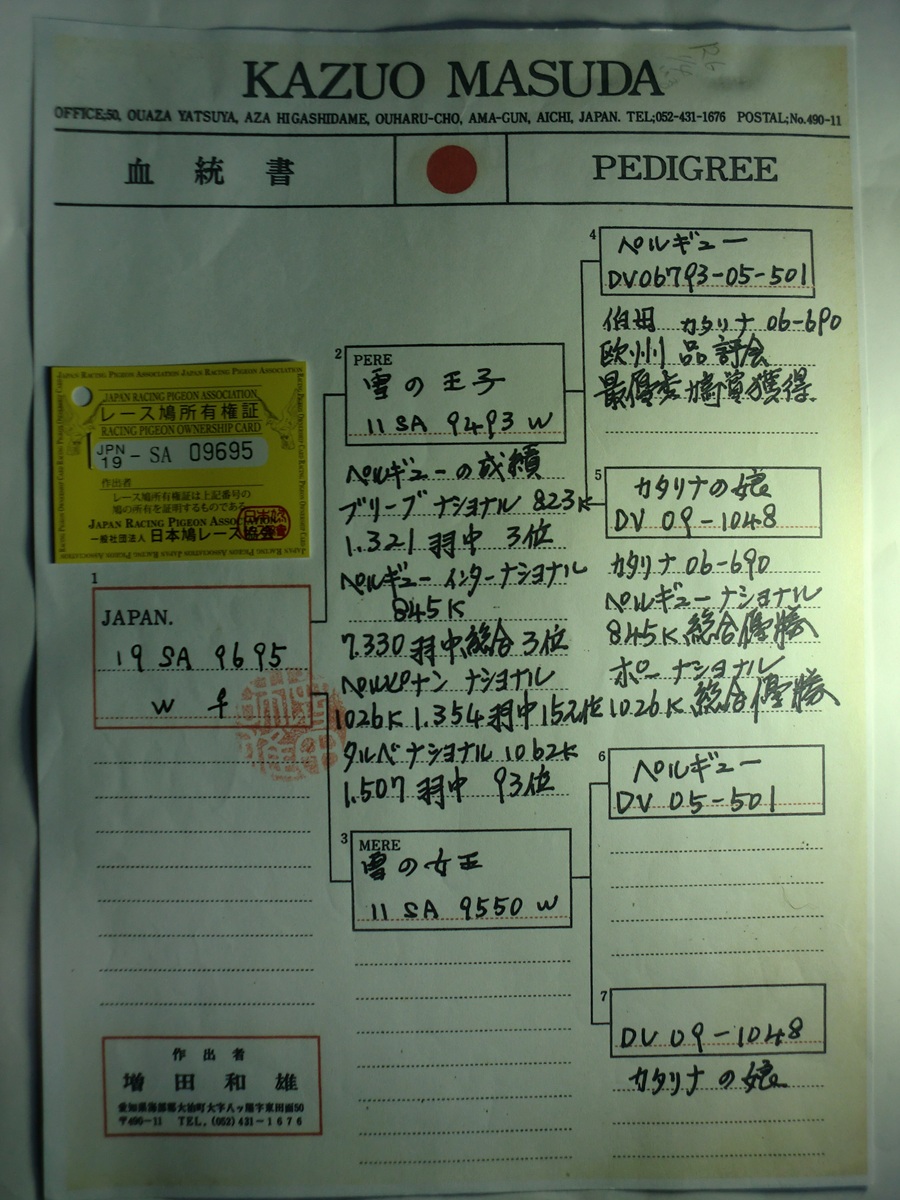 KAZUO MASUDA
OFFICE;50, OUAZA YATSUYA, AZA HIGASHIDAME, OUHARU-CHO, AMA-GUN, AICHI, JAPAN. TEL;052-431-1676 POSTAL;No.490-11
血統書
PEDIGREE
JAPAN RACING PIGEON ASSOCIATION
レース鳩所有権証
RACING PIGEON OWNERSHIP CARD
JPN
19 - SA 09695
作出者
レース鳩所有権証は上記番号の
鳩の所有を証明するものである
JAPAN RACING PIGEON ASSOCIATION
一般社団法人 日本鳩レース協会
1
JAPAN.
19 SA 9695
W ♀
2
PERE
雪の王子
11 SA 9493 W
ペルギューの成績
ブリーブ ナショナル 823K
1.321 羽中 3位
ペルギュー インターナショナル
845K
7.330 羽中 総合 3位
ペルピナン ナショナル
1026K 1.354 羽中 15位
タルベ ナショナル 1062K
1.507 羽中 93位
3
MERE
雪の女王
11 SA 9550 W
4
ペルギュー
DV06793-05-501
伯母 カタリナ 06-690
欧州 品評会
最優秀鳩賞獲得
5
カタリナの娘
DV 09-1048
カタリナ 06-690
ペルギュー ナショナル
845K 総合優勝
ポー ナショナル
1026K 総合優勝
6
ペルギュー
DV 05-501
7
DV 09-1048
カタリナの娘
作出者
増田和雄
愛知県海部郡大治町大字八ッ屋字東田面50
〒490-11 TEL.(052)431-1676